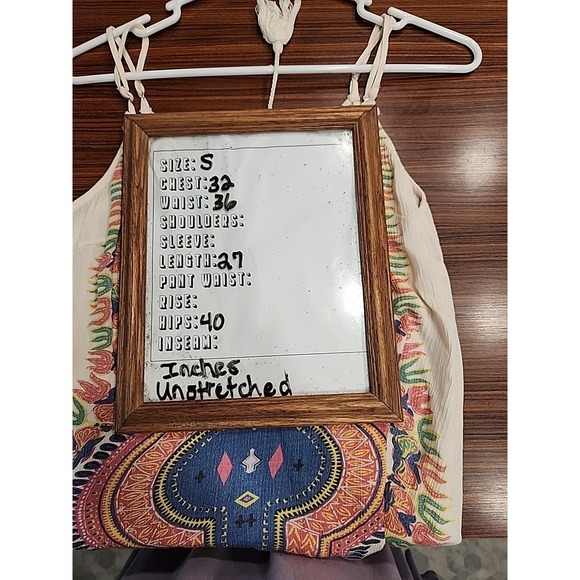 SIZE: S
CHEST: 32
WAIST: 36
SHOULDERS:
SLEEVE:
LENGTH: 27
PANT WAIST:
RISE:
HIPS: 40
INSEAM:
Inches
Unstretched